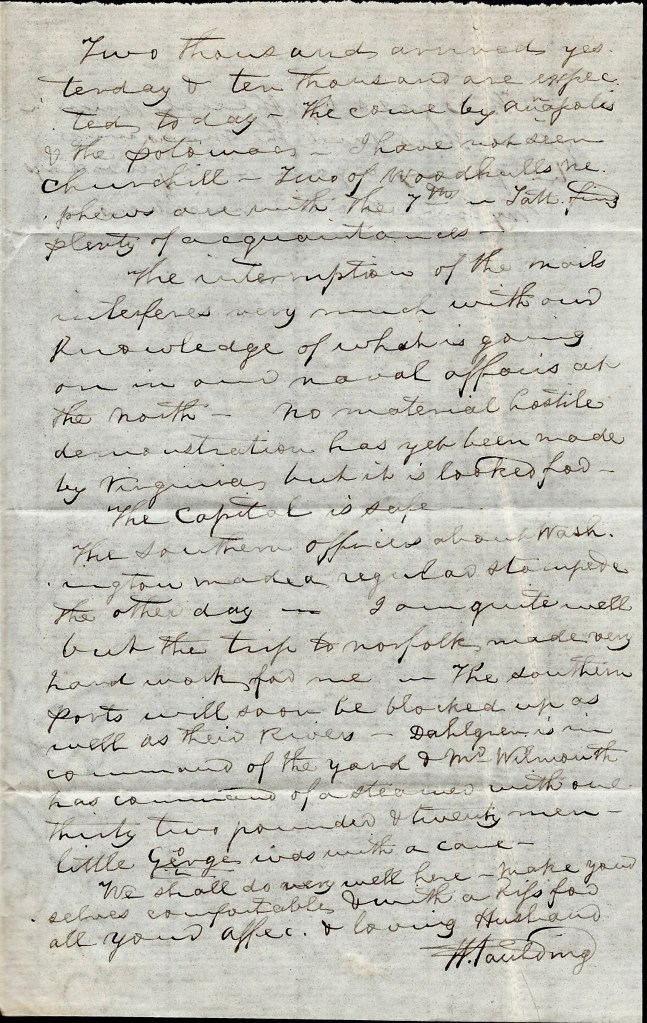 Two thousand arrived yes.
terday & ten thousand are expec.
ted to day - The come by Anapolis
& the potomac - I have not seen
Churchill - Two of Woodhulls ne.
phews are with the 7th - Tatt. finds
plenty of acquaintances -
The interruption of the mails
interferes very much with our
knowledge of what is going
on in our naval affairs at
the north - no material hostile
demonstration has yet been made
by Virginias but it is looked for -
The Capital is safe -
The Southern officers about Wash.
ington made a regular stampede
the other day - I am quite well
but the trip to norfolk made very
hard work for me - The southern
ports will soon be blocked up as
well as their Rivers - Dahlgren is in
command of the yard & Mr Wilmouth
has command of a steamer with one
thirty two pounder & twenty men -
little George was with a cane -
We shall do very well here - make your
selves comfortable & with a kiss for
all your affec. & loving Husband
H. Paulding